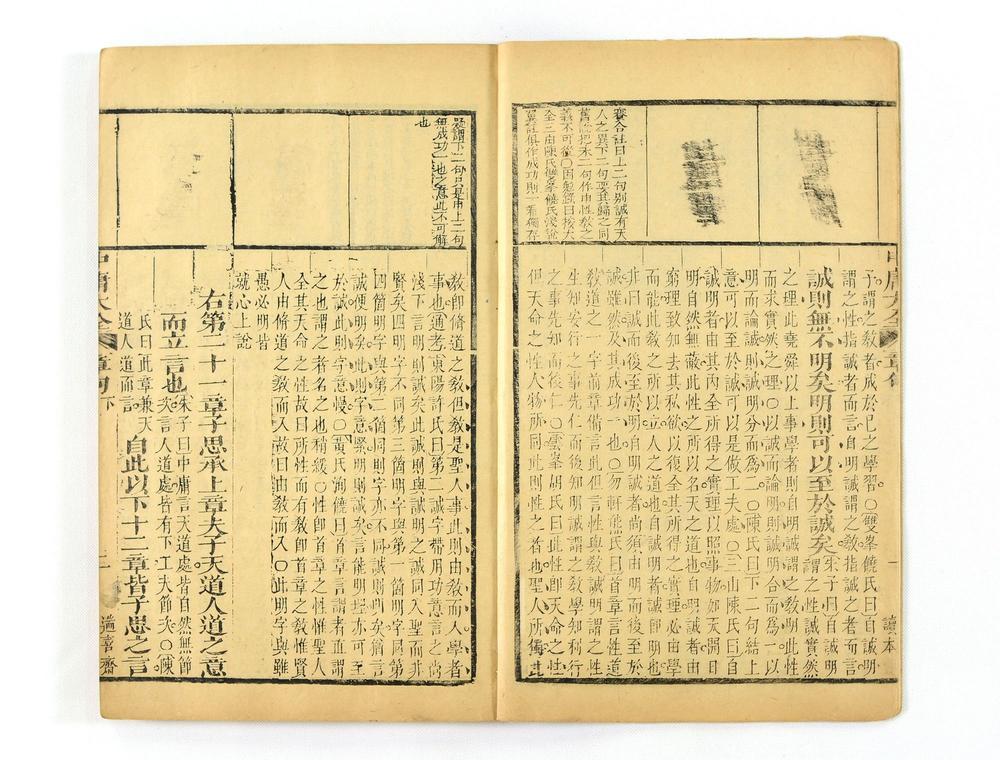 賽合註曰上二句別誠有天
人之異下二句要其歸之同
舊說把末二句作由性教之
義不可從○困勉錄曰按大
全三山陳氏雙峯饒氏淺說
翼註俱作成功則一看獨存
子謂之教者成於己之學習○雙峯饒氏曰自誠明
謂之性指誠者而言自明誠謂之教指誠之者而言
誠則無不明矣明則可以至於誠矣朱子曰自誠明謂之性誠實然
之理此堯舜以上事學者則自明誠謂之教明此性
而求實然之理○以誠而論明則誠明合而為一以
明而論誠則誠明分而為二○陳氏曰下二句結上
意可以至於誠可以是做工夫處○三山陳氏曰自
誠明者由其內全所得之實理以照事物如天開日
明自然無蔽此性之所以名天之道也自明誠者由
窮理致知去其私欲以復全其所得之實理必由學
而能此教之所以立人之道也自誠明者誠即明也
非曰誠而後至於明自誠明者尚須由明而後至於
誠雖然及其成功一也○勿軒熊氏曰首章言性道
教道之一字前章備言此但言性與教誠明謂之性
生知安行之事先仁而後知明誠謂之教學知利行
之事先知而後仁○雲峯胡氏曰此性即天命之性
但天命之性人物所同此則性之者也聖人所獨此
中庸大全 章句 一 讀本
疑謂下二句只是申上二句
無成功一也之意此不可解
也
教即脩道之教但教是聖人事此則由教而入學者
事也通考東陽許氏曰第二誠字帶用功意言之尚
淺下言明則誠矣此誠則與誠明之誠同入聖而非
賢矣四明字不同第三箇明字與第一箇明字同第
四箇明字與第二箇同則字亦不同誠則明猶言
誠便明矣此則字意緊明則誠矣言能明埋亦可至
於誠此則字意慢○黃氏洵饒曰首章言謂者直謂
之也謂之者名之也稍緩○性即首章之性惟聖人
全其天命之性然性而有教即首章之教惟賢
人由脩道之教而入故曰由教而入○此明字與雖
愚必明皆
就心上說
右第二十一章子思承上章夫子天道人道之意
而立言也朱子曰中庸言天道處皆自然無節次言人道處皆有下工夫節次○陳
氏曰此章兼天道人道而言自此以下十二章皆子思之言
中庸大全 章句下 二 遄喜齋